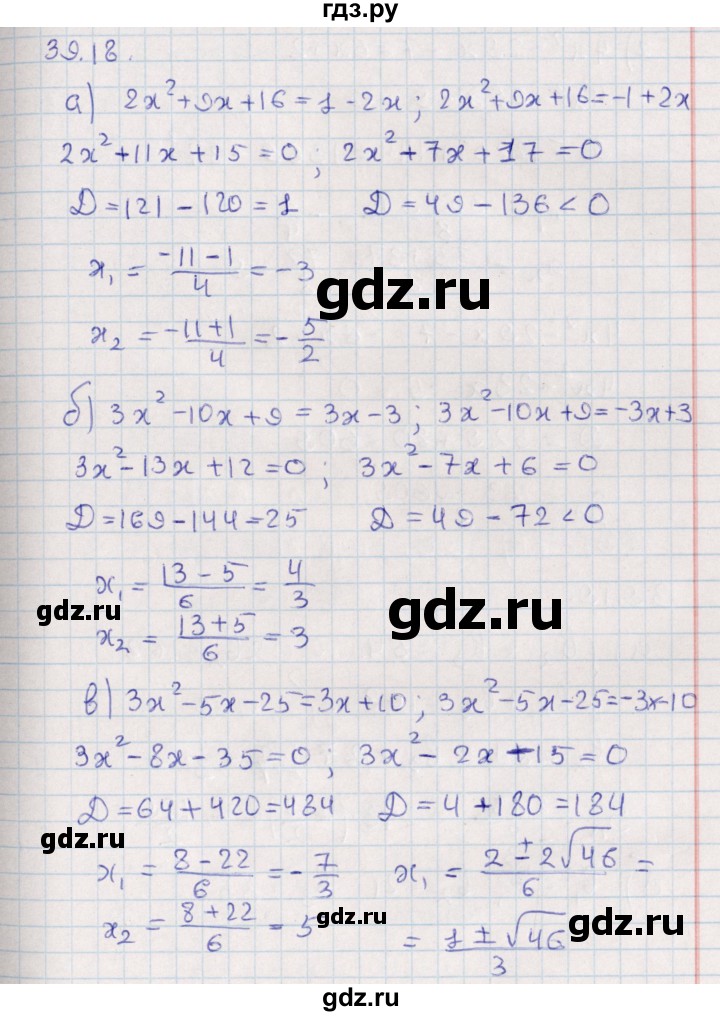 гдз.ру
39.18.
а) 2x²+9x+16=1-2x; 2x²+9x+16=-1+2x
2x²+11x+15=0; 2x²+7x+17=0
D=121-120=1 D=49-136<0
x₁ = (-11-1)/4 = -3
gdz.ru
x₂ = (-11+1)/4 = -5/2
б) 3x²-10x+9=3x-3; 3x²-10x+9=-3x+3
3x²-13x+12=0; 3x²-7x+6=0
D=169-144=25 D=49-72<0
x₁ = (13-5)/6 = 4/3
gdz.ru gdz.ru
x₂ = (13+5)/6 = 3
в) 3x²-5x-25=3x+10; 3x²-5x-25=-3x-10
3x²-8x-35=0; 3x²-2x-15=0
D=64+420=484 D=4+180=184
gdz.ru
x₁ = (8-22)/6 = -7/3 x₁ = (2±2√46)/6 =
x₂ = (8+22)/6 = 5 = (1±√46)/3
gdz.ru gdz.ru
gdz.ru
gdz.ru